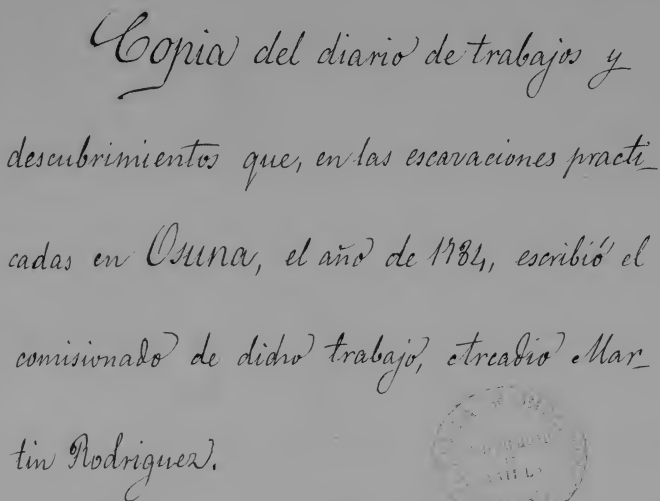 Copia del diario de trabajos y
descubrimientos que, en las escavaciones practi-
cadas en Osuna, el año de 1784, escribió el
comisionado de dicho trabajo, Arcadio Mar-
tin Rodriguez.